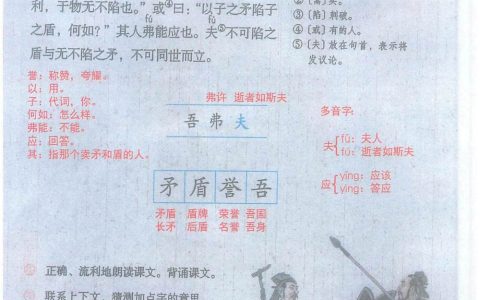 利，于物无不陷也。”或④曰：“以子之矛陷子
fú fú
之盾，何如？”其人弗能应也。夫⑤不可陷之
盾与无不陷之矛，不可同世而立。
③〔陷〕刺破。
④〔或〕有的人。
⑤〔夫〕放在句首，表示将
发议论。
誉：称赞，夸耀。
以：用。
子：代词，你。
何如：怎么样。
弗能：不能。
应：回答。
其：指那个卖矛和盾的人。
弗许 逝者如斯夫
吾弗夫
多音字：
夫 fū：夫人
fú：逝者如斯夫
应 yīng：应该
yìng：答应
矛盾誉吾
矛盾 盾牌 荣誉 吾国
长矛 后盾 名誉 吾身
正确、流利地朗读课文。背诵课文。
联系上下文，猜测加点字的意思。